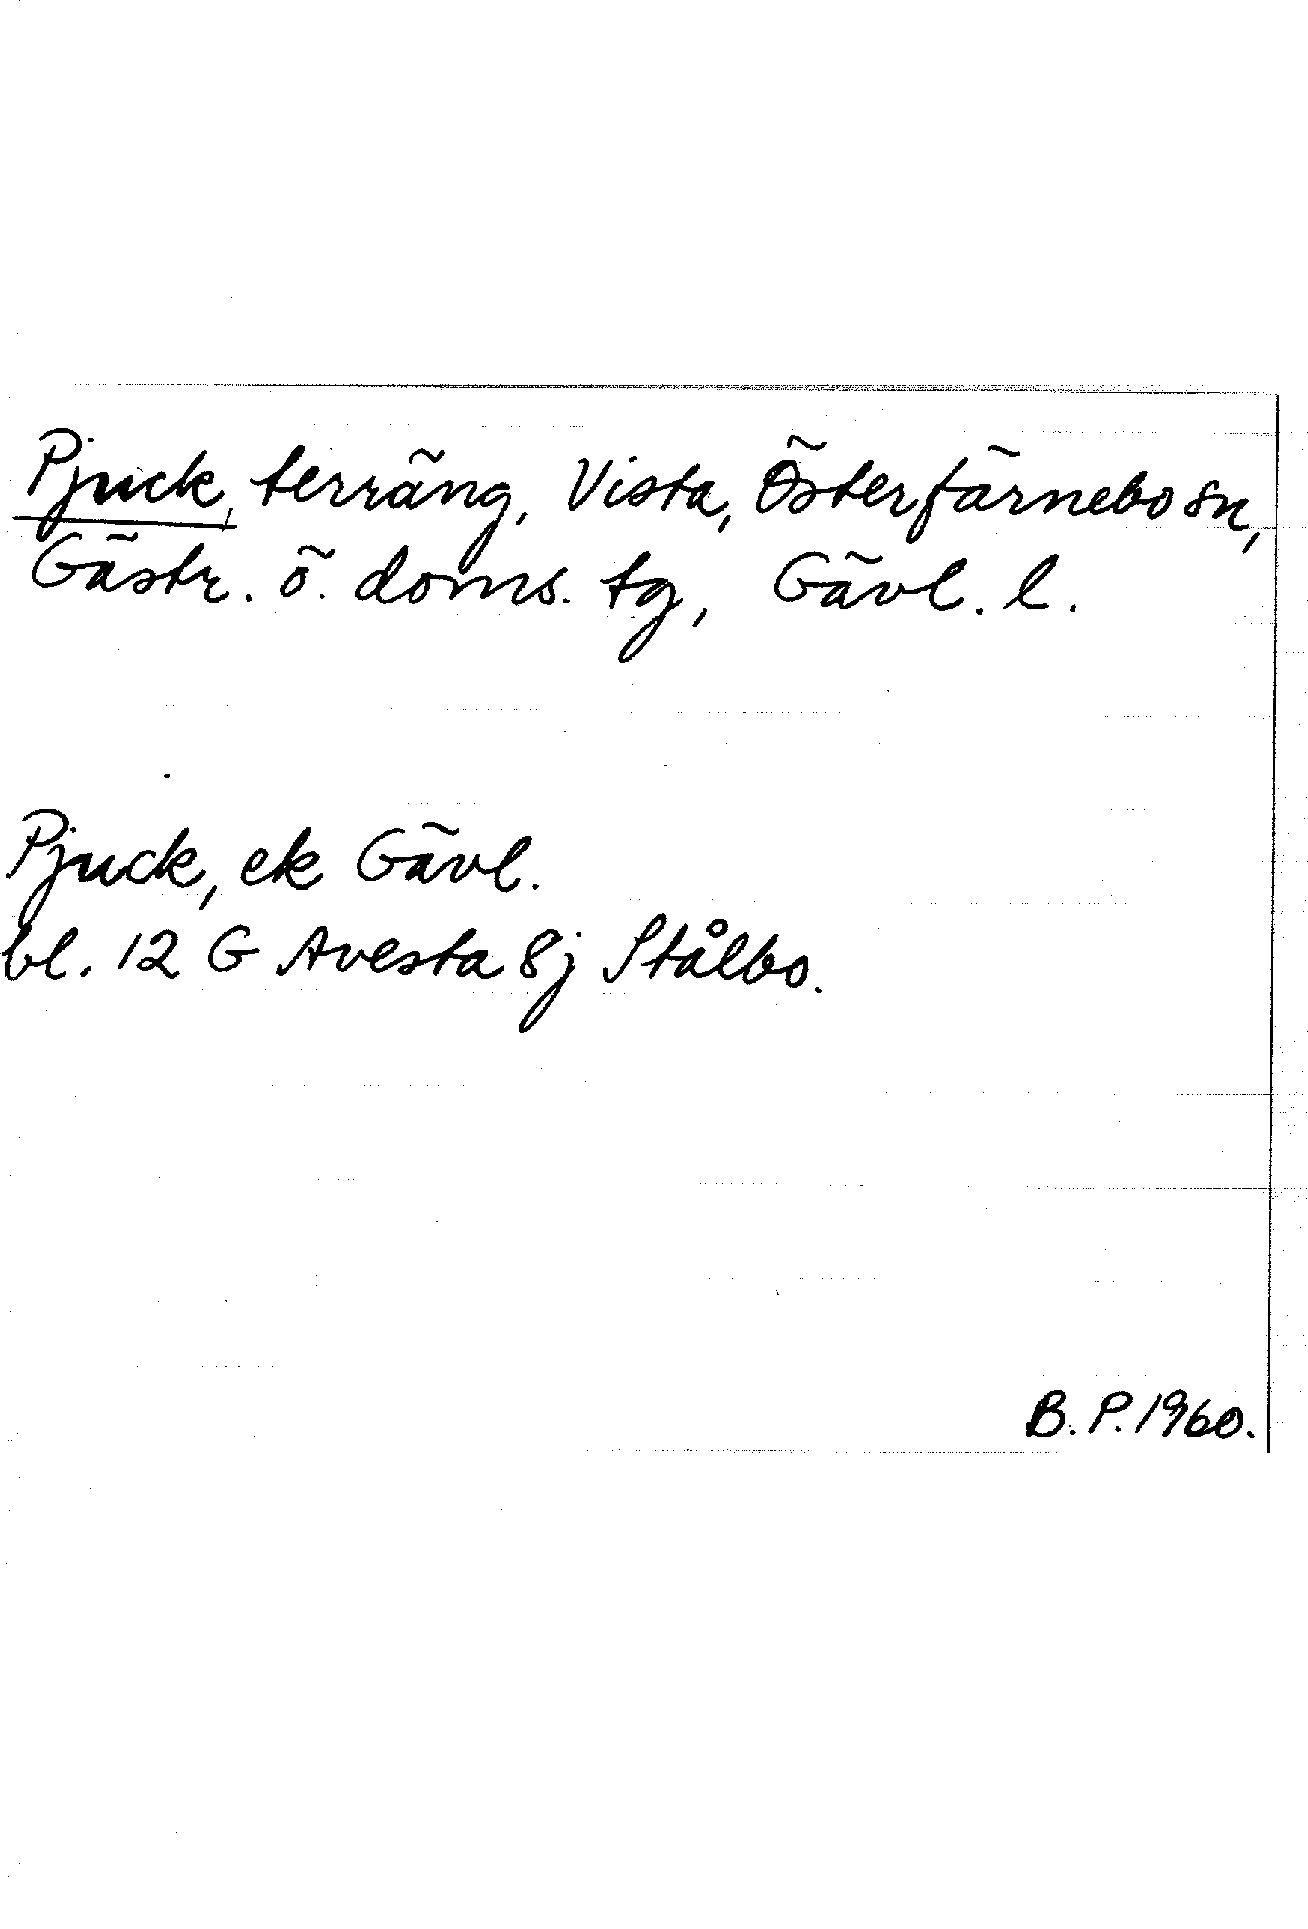 Pjuck, terräng, Vista, Österfärnebo sn,
Gästr. ö. doms. tg, Gävl. l.
Pjuck, ek Gävl.
bl. 12 G Avesta 8j Stålbo.
B. P. 1960.